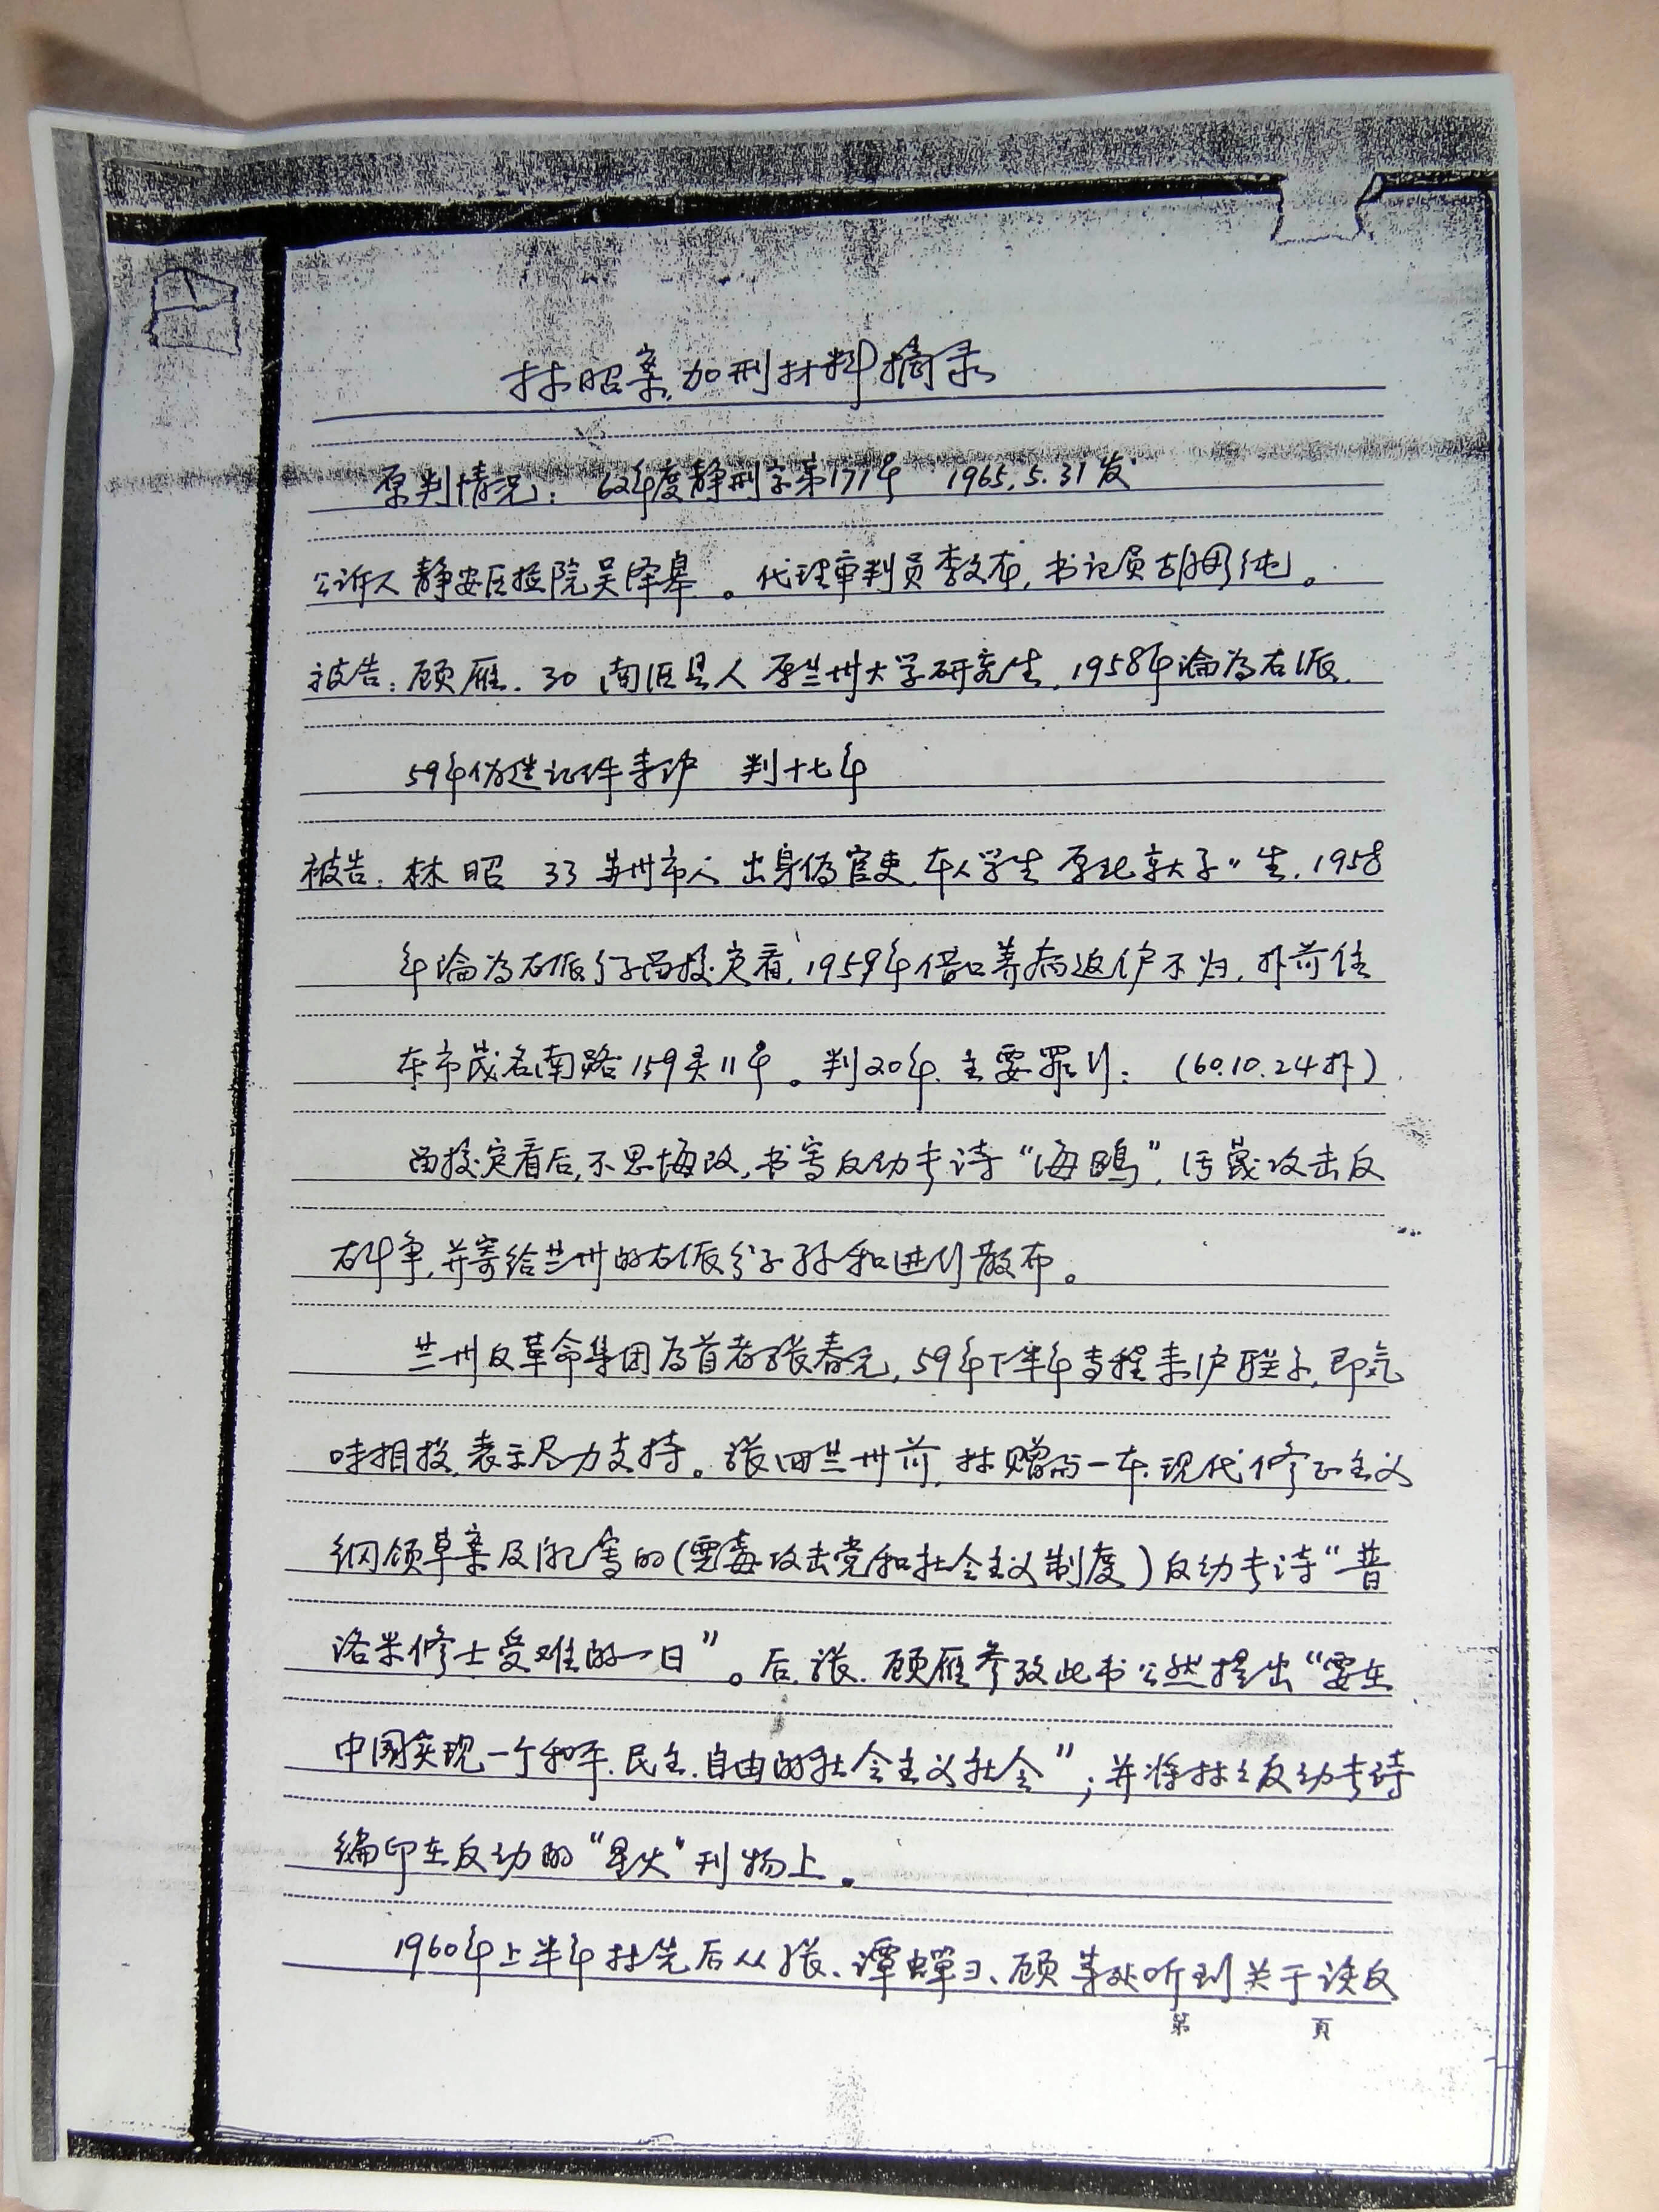 林昭案加刑材料摘录
原判情况：62年度静刑字第171号 1965.5.31发
公诉人静安区检院吴泽皋。代理审判员李文布，书记员胡彤纯。
被告：顾雁．30 南汇县人 原兰州大学研究生，1958年沦为右派．
59年伪造证件来沪 判十七年
被告：林昭 33 苏州市人 出身伪官吏．本人学生 原北京大学〃生，1958
年沦为右派分子留校察看，1959年借口养病返沪不归，扑前住
本市茂名南路159弄11号。判20年．主要罪行：(60.10.24扑)
留校察看后，不思悔改，书写反动长诗“海鸥”，污蔑攻击反
右斗争，并寄给兰州的右派分子孙和进行散布。
兰州反革命集团为首者张春元，59年下半年专程来沪联系，即气
味相投，表示尽力支持。张回兰州前，林赠与一本．现代修正主义
纲领草案及所写的(恶毒攻击党和社会主义制度)反动长诗“普
洛米修士受难的一日”。后．张．顾雁参改此书公然提出“要在
中国实现一个和平．民主．自由的社会主义社会”；并将林之反动长诗
编印在反动的“星火”刊物上。
1960年上半年林先后从张、谭蝉彐、顾等处听到关于该反
第 页